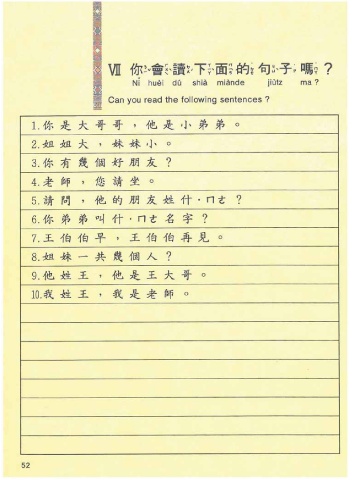 Ⅶ 你會讀下面的句子嗎？
Nǐ huèi dú shià miànde jiùtz ma?
Can you read the following sentences?
1.你是大哥哥，他是小弟弟。
2.姐姐大，妹妹小。
3.你有幾個好朋友？
4.老師，您請坐。
5.請問，他的朋友姓什˙ㄇㄜ？
6.你弟弟叫什˙ㄇㄜ名字？
7.王伯伯早，王伯伯再見。
8.姐妹一共幾個人？
9.他姓王，他是王大哥。
10.我姓王，我是老師。
52